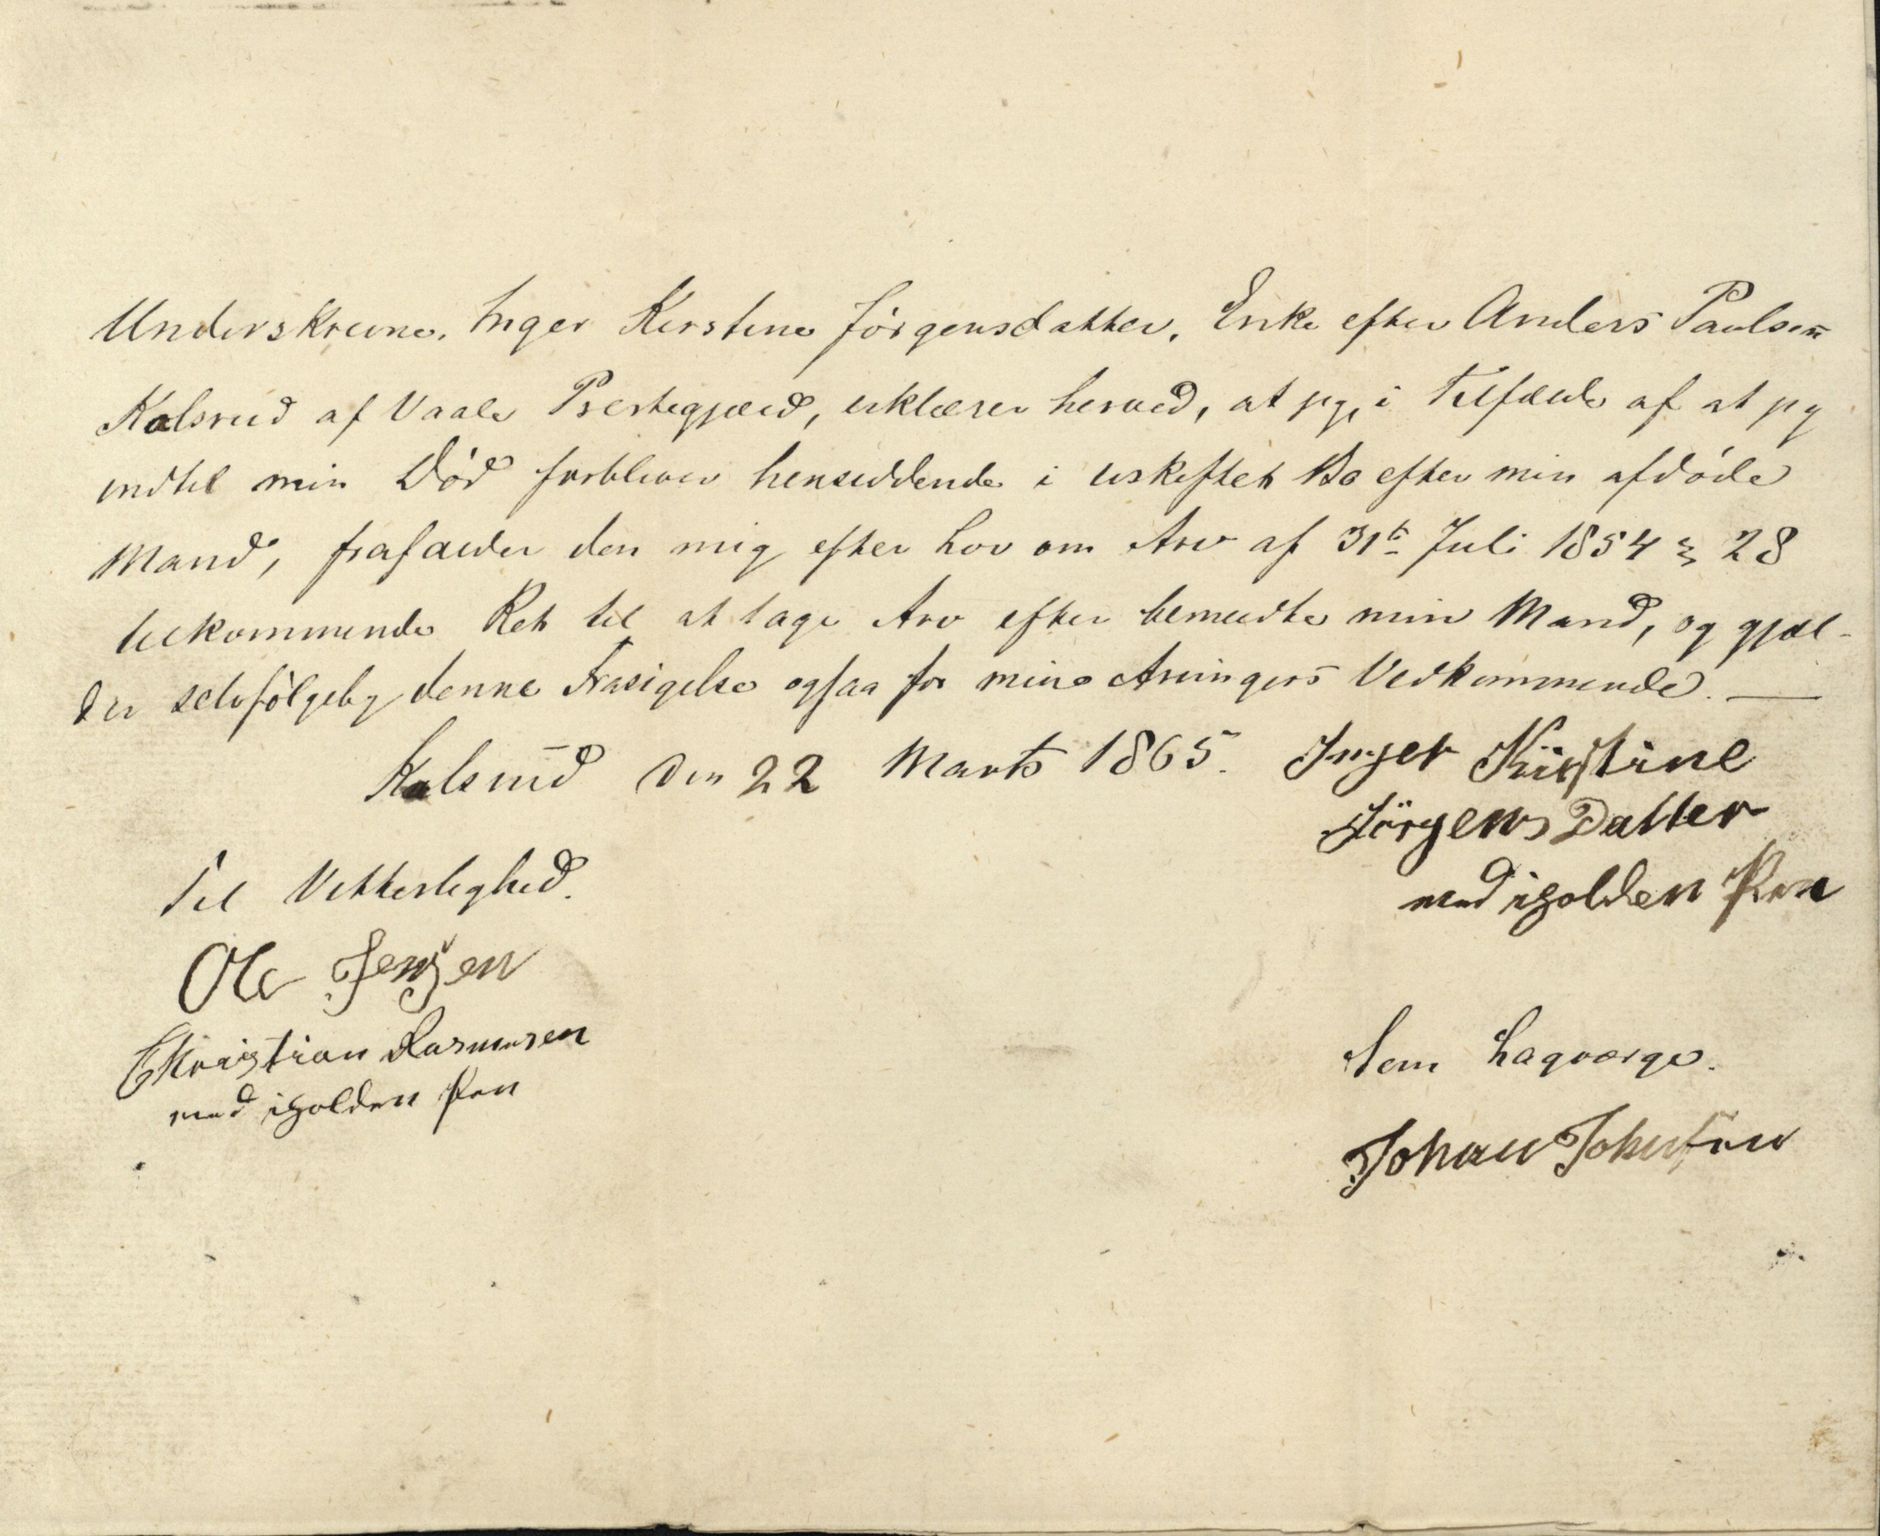 Underskrevne, Inger Kirstine Jörgensdatter, Enke efter Anders Paulsen
Kalsrud af Vaale Præstegjæld, erklærer herved, at jeg, i Tilfælde af at jeg
indtil min Död forbliver hensiddende i uskiftet Bo efter min afdöde
Mand, frafalder den mig efter Lov om Arv af 31te Juli 1854 § 28
tilkommende Ret til at tage Arv efter bemeldte min Mand, og gjæl-
der selvfölgelig denne Frasigelse ogsaa for mine Arvingers Vedkommende. —
Kalsrud den 22 Marts 1865. Inger Kirstine
Jörgens Datter
med iholden Pen
Til Vitterlighed.
Ole Jensen
Christian Rasmusen
med iholden Pen
Som Lagværge.
Johan Johnsen